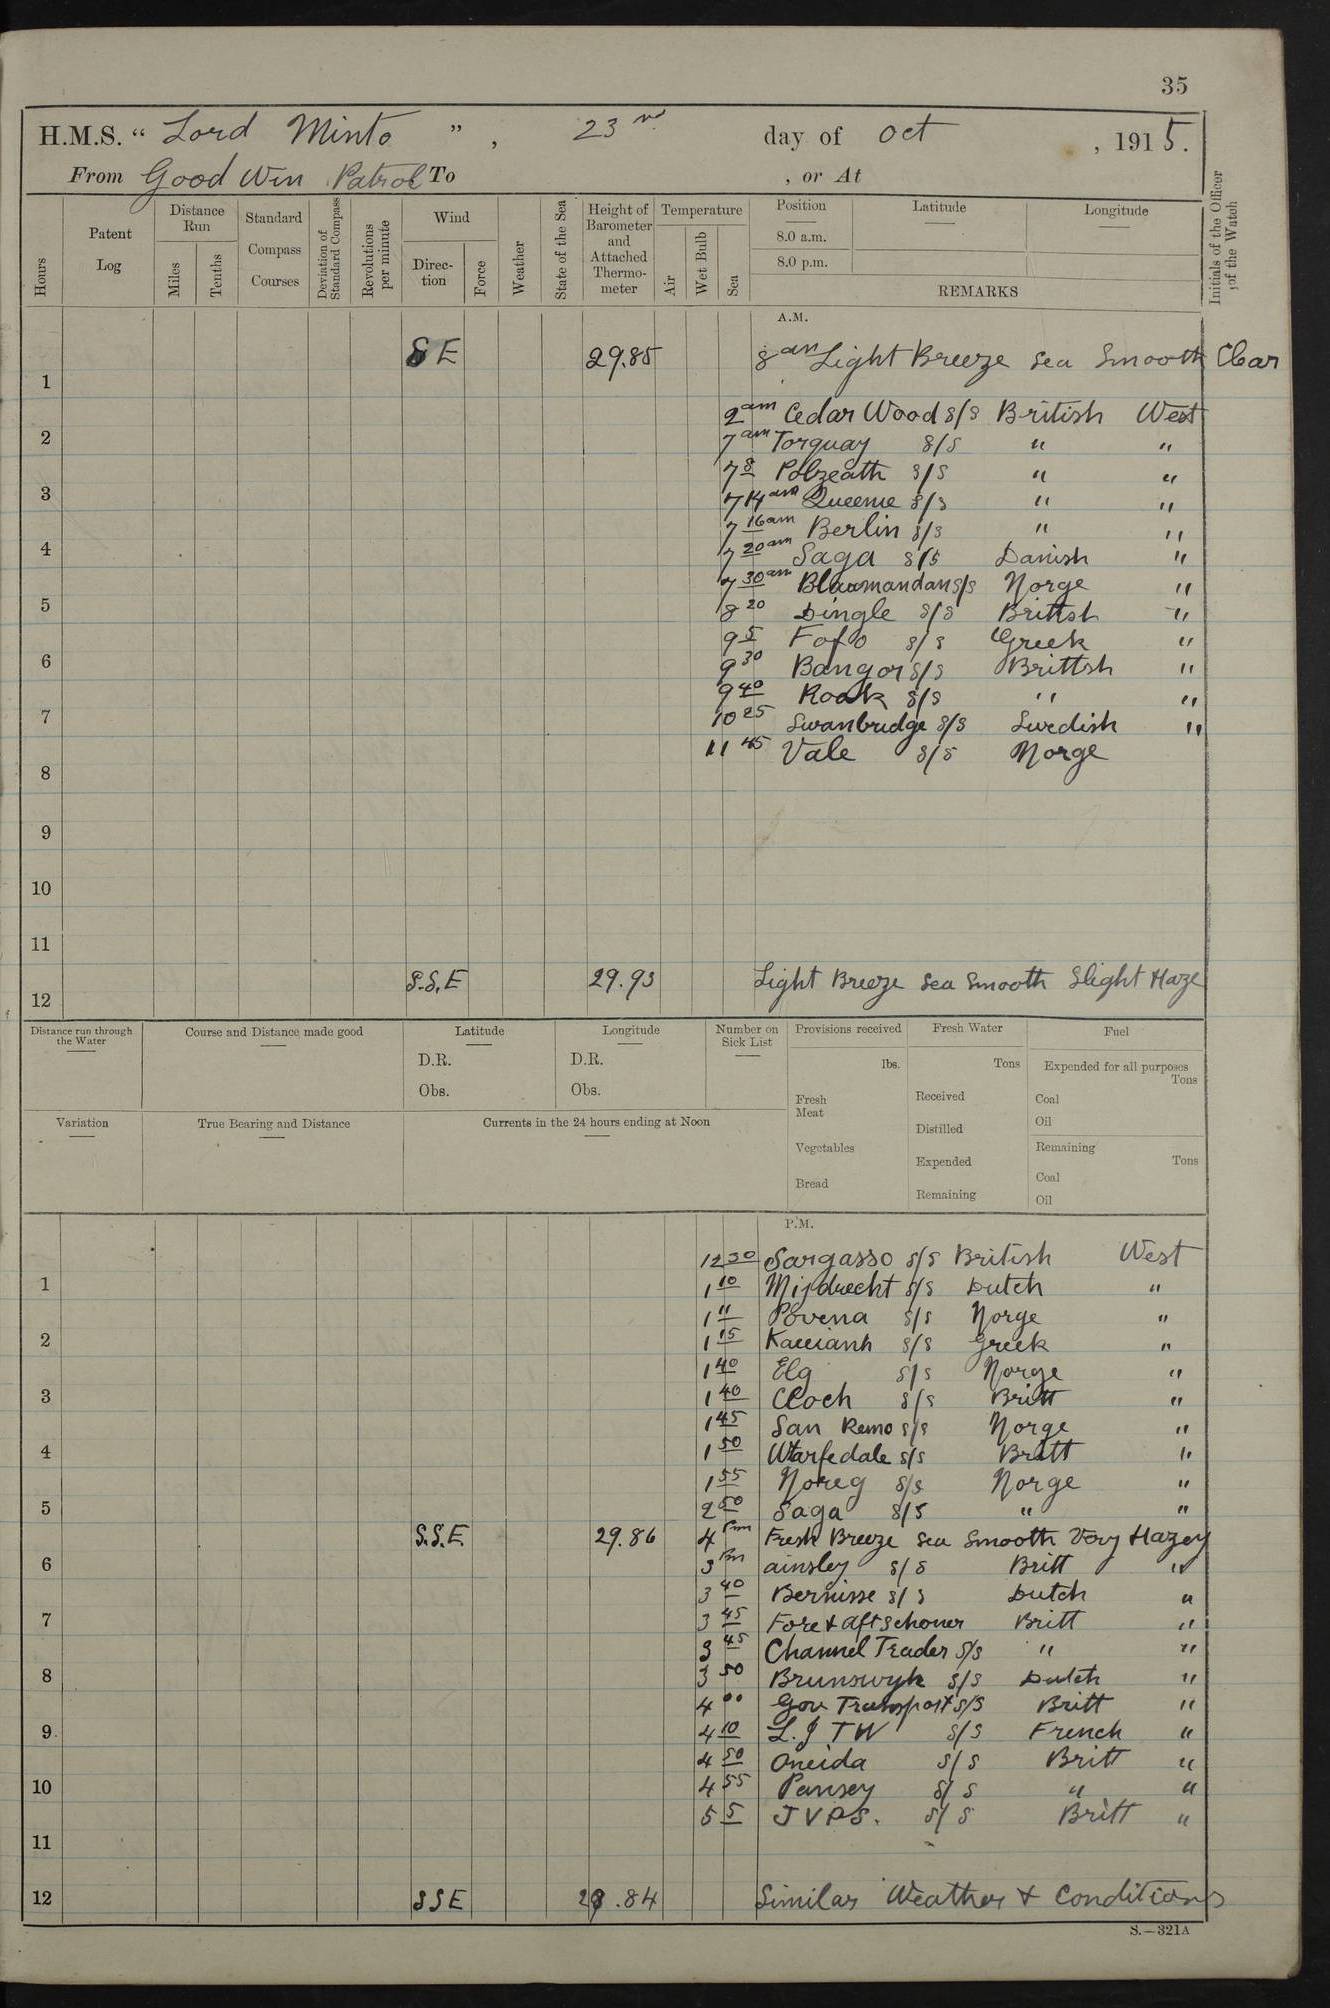 35
H.M.S. “ Lord Minto ” , 23rd day of Oct , 1915.
From Good Win Patrol To , or At
Hours
Patent Log
Distance Run
Miles
Tenths
Standard Compass Courses
Deviation of Standard Compass
Revolutions per minute
Wind
Direc-tion
Force
Weather
State of the Sea
Height of Barometer and Attached Thermo-meter
Temperature
Air
Wet Bulb
Sea
Position
8.0 a.m.
8.0 p.m.
Latitude
Longitude
REMARKS
Initials of the Officer of the Watch
A.M.
1 S E 29.85 8 am Light Breeze Sea Smooth Clear
2 am Cedar Wood s/s British West
2 7 am Torquay s/s " "
7 8 Polzeath s/s " "
3 7 14 am Queenie s/s " "
7 16 am Berlin s/s " "
4 7 20 am Saga s/s Danish "
7 30 am s/s Norge "
5 8 20 Dingle s/s Brittsh "
9 5 Fofo s/s Greek "
6 9 30 Bangor s/s Brittsh "
9 40 s/s " "
7 10 25 Swanbridge s/s Swedish "
11 45 Vale s/s Norge
8
9
10
11
12 S.S.E 29.93 Light Breeze Sea Smooth Slight Haze
Distance run through the Water
Course and Distance made good
Latitude
D.R.
Obs.
Longitude
D.R.
Obs.
Number on Sick List
Provisions received
lbs.
Fresh Meat
Vegetables
Bread
Fresh Water
Tons
Received
Distilled
Expended
Remaining
Fuel
Expended for all purposes
Tons
Coal
Oil
Remaining
Tons
Coal
Oil
Variation
True Bearing and Distance
Currents in the 24 hours ending at Noon
P.M.
12 30 Sargasso s/s British West
1 1 10 Mijdrecht s/s Dutch "
1 11 Povena s/s Norge "
2 1 15 s/s Greek "
1 40 Elg s/s Norge "
3 1 40 Cloch s/s Britt "
1 45 San Remo s/s Norge "
4 1 50 Warfedale s/s Britt "
1 55 Noreg s/s Norge "
5 2 50 Saga s/s " "
S.S.E 29.86 4 Pm Fresh Breeze Sea Smooth Very Hazey
6 3 Pm ainsley s/s Britt "
3 40 Bernisse s/s Dutch "
7 3 45 Fore & aft Schoner Britt "
3 45 Channel Trader s/s " "
8 3 50 Brunswyk s/s Dutch "
4 00 Gov Transport s/s Britt "
9 4 10 L. J T W s/s French "
4 50 Oneida s/s Britt "
10 4 55 Pansey s/s " "
5 5 J V P S. s/s Britt "
11
12 SSE 29.84 Similar Weather & Conditions
S.—321A